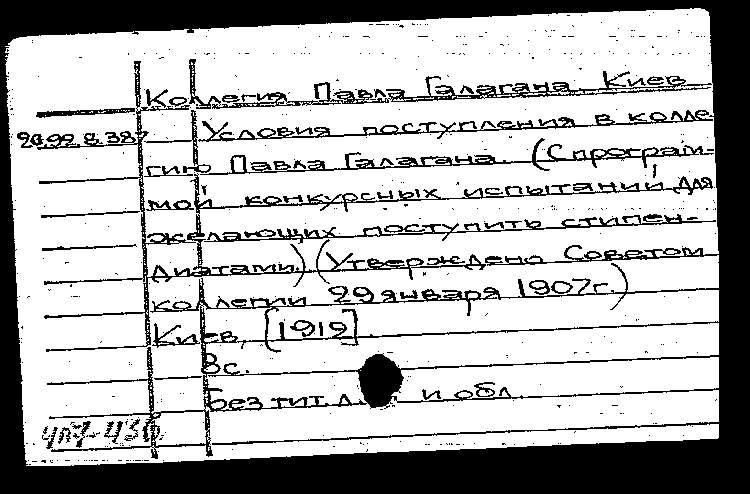 Коллегия Павла Галагана. Киев
Условия поступления в колле-
гию Павла Галагана. (С програм-
мой конкурсных испытаний для
желающих поступить стипен-
диатами) (Утверждено Советом
коллегии 29 января 1907г.)
Киев, [1912].
8с.
Без тит. л. и обл.